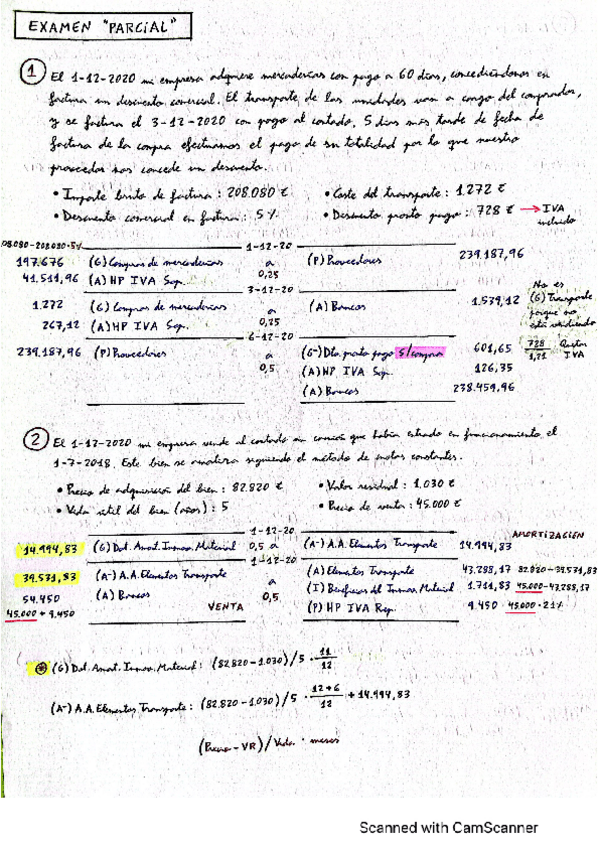 EXAMEN "PARCIAL"
1 El 1-12-2020 mi empresa adquiere mercaderías con pago a 60 días, concediéndonos en
factura un descuento comercial. El transporte de las unidades van a cargo del comprador,
y se factura el 3-12-2020 con pago al contado. 5 días más tarde de fecha de
factura de la compra efectuamos el pago de su totalidad por lo que nuestro
proveedor nos concede un descuento.
• Importe bruto de factura: 208.080 € • Coste del transporte: 1.272 €
• Descuento comercial en factura: 5% • Descuento pronto pago: 728 € → IVA
incluido
208.080-208.080·5%
1-12-20
197.676 (G) Compras de mercaderías a (P) Proveedores 239.187,96
41.511,96 (A) HP IVA Sop. 0,25
3-12-20
1.272 (G) Compras de mercaderías a (A) Bancos 1.539,12
267,12 (A) HP IVA Sop. 0,25
No es
(G) Transporte
porque no
está vendiendo
6-12-20
239.187,96 (P) Proveedores a (G-) Dto. pronto pago s/compras 601,65 728/1,21 Quitar IVA
0,5 (A) HP IVA Sop. 126,35
(A) Bancos 238.459,96
2 El 1-12-2020 mi empresa vende al contado un camión que había entrado en funcionamiento el
1-7-2018. Este bien se amortiza siguiendo el método de cuotas constantes.
• Precio de adquisición del bien: 82.820 € • Valor residual: 1.030 €
• Vida útil del bien (años): 5 • Precio de venta: 45.000 €
1-12-20 AMORTIZACIÓN
14.994,83 (G) Dot. Amort. Inmov. Material 0,5 a (A-) A.A. Elementos Transporte 14.994,83
1-12-20
39.531,83 (A-) A.A. Elementos Transporte a (A) Elementos Transporte 43.288,17 82.820-39.531,83
54.450 (A) Bancos 0,5 (I) Beneficios del Inmov. Material 1.711,83 45.000-43.288,17
45.000 + 9.450 VENTA (P) HP IVA Rep. 9.450 45.000·21%
(G) Dot. Amort. Inmov. Material: (82.820-1.030)/5 · 11/12
(A-) A.A. Elementos Transporte: (82.820-1.030)/5 · 12+6/12 + 14.994,83
(Precio-VR)/Vida · meses
Scanned with CamScanner